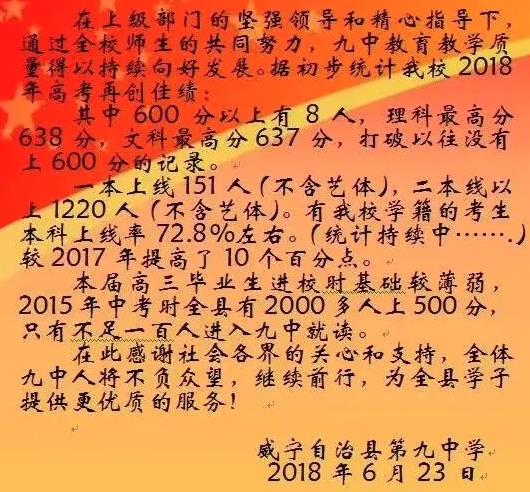 在上级部门的坚强领导和精心指导下，
通过全校师生的共同努力，九中教育教学质
量得以持续向好发展。据初步统计我校 2018
年高考再创佳绩：
其中 600 分以上有 8 人，理科最高分
638 分，文科最高分 637 分，打破以往没有
上 600 分的记录。
一本上线 151 人（不含艺体），二本线以
上 1220 人（不含艺体）。有我校学籍的考生
本科上线率 72.8%左右。（统计持续中…….）
较 2017 年提高了 10 个百分点。
本届高三毕业生进校时基础较薄弱，
2015 年中考时全县有 2000 多人上 500 分，
只有不足一百人进入九中就读。
在此感谢社会各界的关心和支持，全体
九中人将不负众望，继续前行，为全县学子
提供更优质的服务！
威宁自治县第九中学
2018 年 6 月 23 日